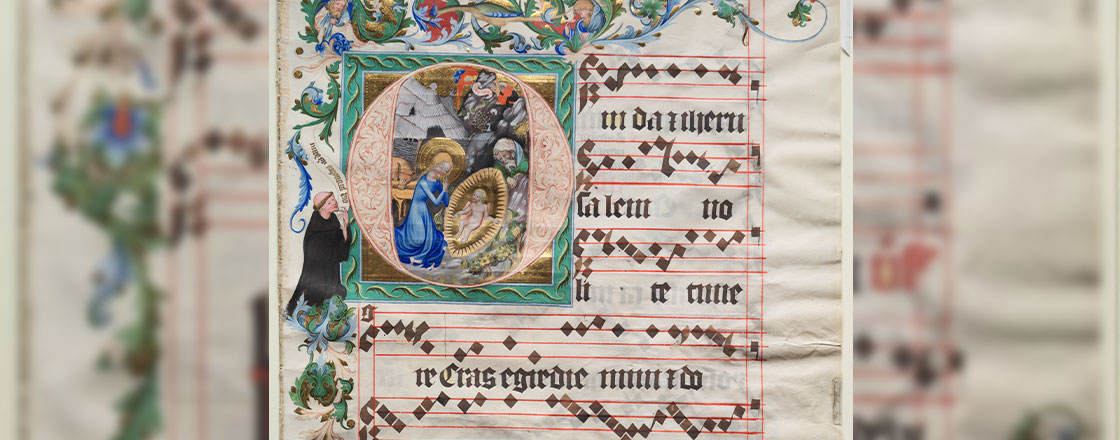 O iu da ⁊ iheru
sa lem no
li te time
re Cras egredie mini ⁊ do